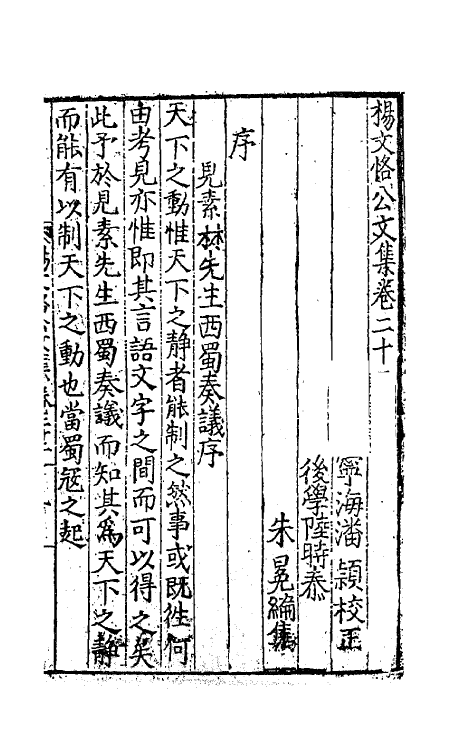 楊文恪公文集卷二十
寧海潘 頴校正
後學陸時泰
朱冕編集
序
見素林先生西蜀奏議序
天下之動惟天下之靜者能制之然事或既徃何
由考見亦惟即其言語文字之間而可以得之矣
此予於見素先生西蜀奏議而知其為天下之靜
而能有以制天下之動也當蜀寇之起